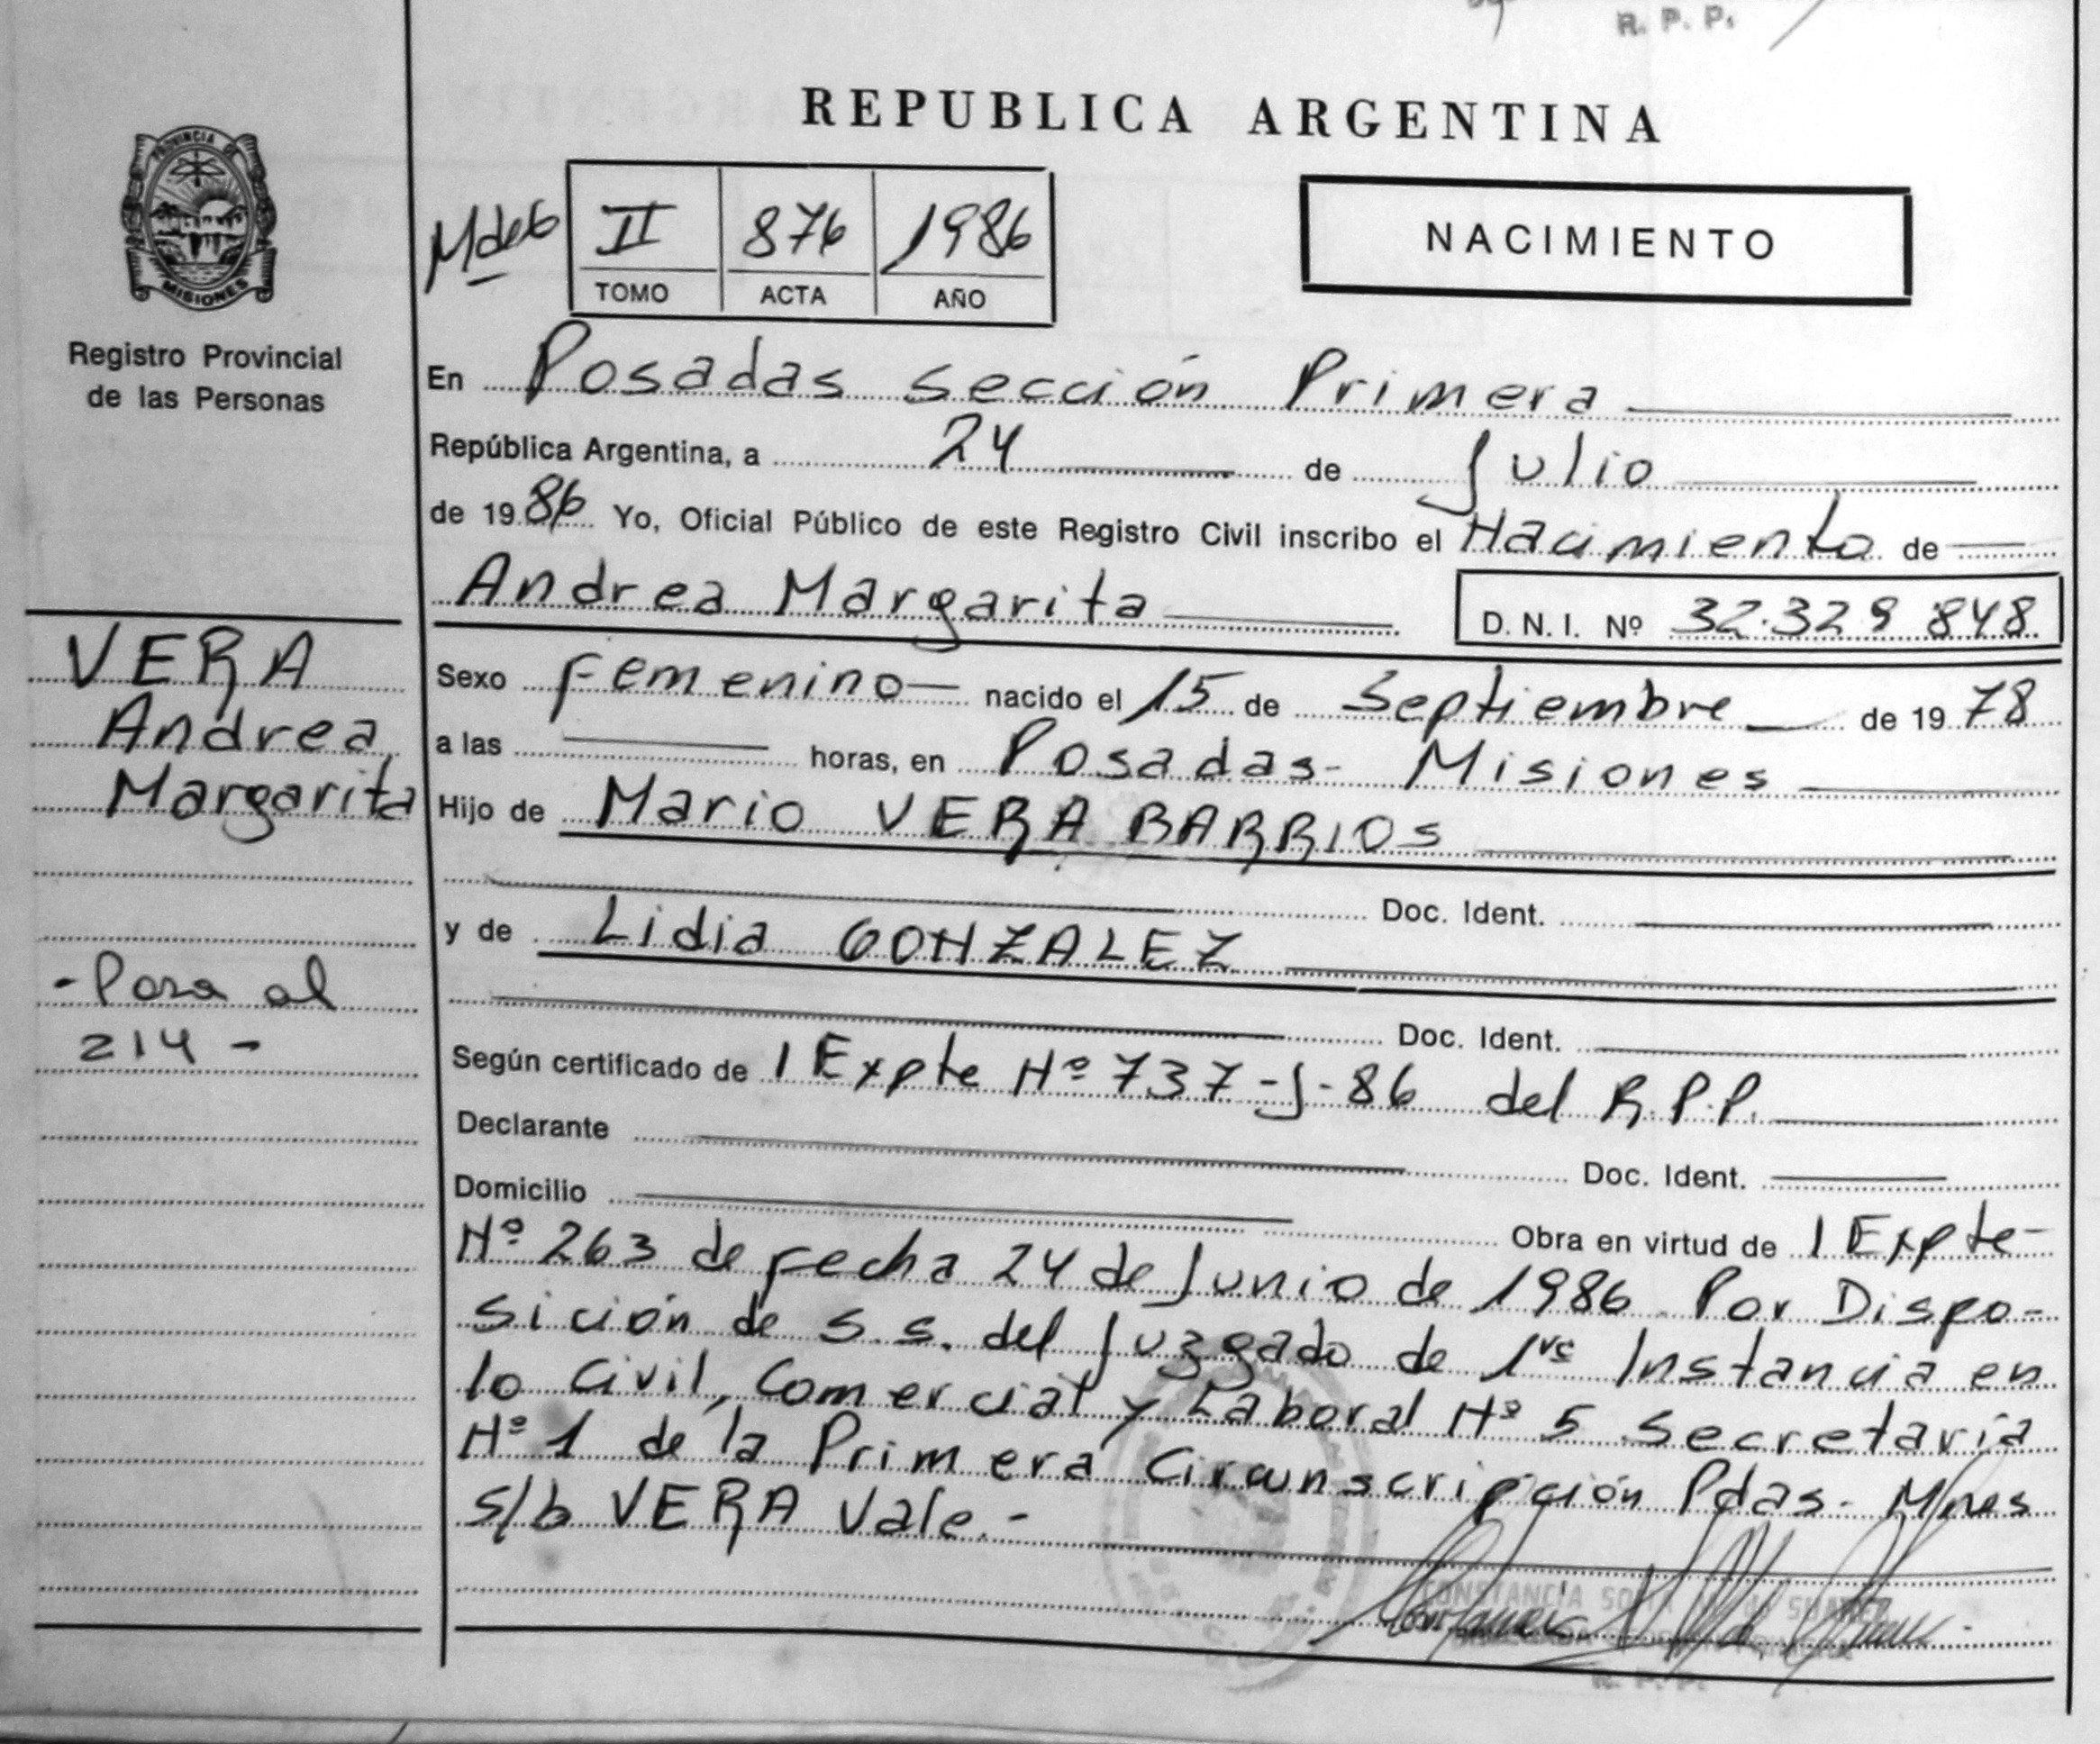 R. P. P.
REPUBLICA ARGENTINA
PROVINCIA DE
MISIONES
Registro Provincial
de las Personas
II 876 1986
TOMO ACTA AÑO
NACIMIENTO
En Posadas Sección Primera
República Argentina, a 24 de Julio
de 1986 Yo, Oficial Público de este Registro Civil inscribo el Nacimiento de
Andrea Margarita
D. N. I. Nº 32.329 848
VERA
Andrea
Margarita
Sexo Femenino nacido el 15 de Septiembre de 1978
a las horas, en Posadas - Misiones
Hijo de Mario VERA BARRIOS
Doc. Ident.
y de Lidia GONZALEZ
Doc. Ident.
- Pasa al
214 -
Según certificado de 1 Expte Nº 737-J-86 del R.P.P.
Declarante Doc. Ident.
Domicilio
Obra en virtud de 1 Expte
Nº 263 de fecha 24 de Junio de 1986 Por Dispo-
sición de S.S. del Juzgado de 1ra Instancia en
lo Civil, Comercial y Laboral Nº 5 Secretaria
Nº 1 de la Primera Circunscripción Pdas - Mnes
s/b VERA Vale.-
CONSTANCIA
R. P. P.